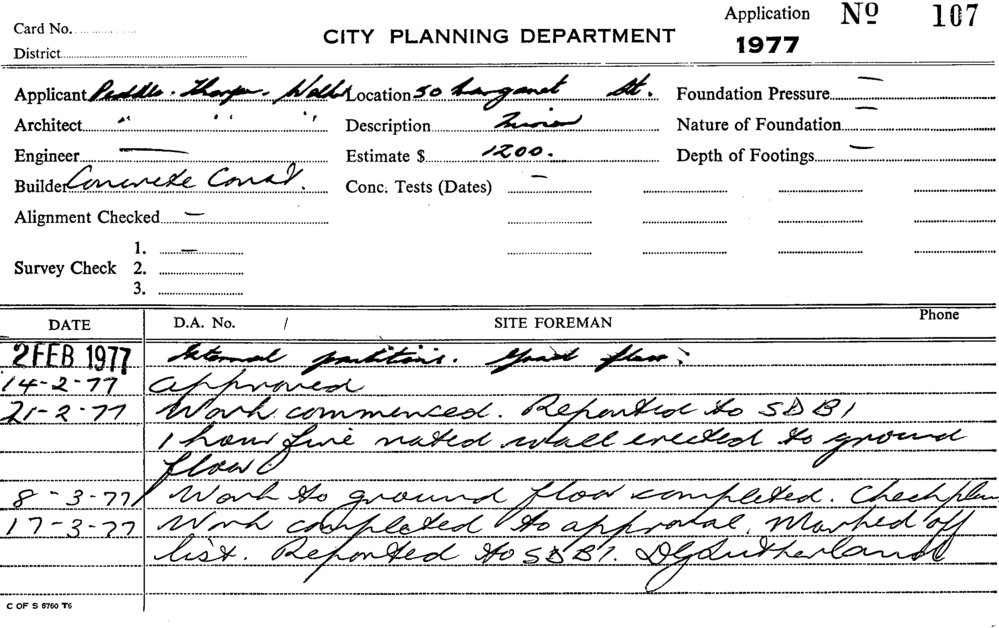 Card No.
District
CITY PLANNING DEPARTMENT
Application No 107
1977
Applicant Peddle. Thorpe. Walker Location 50 Margaret St. Foundation Pressure —
Architect " " " Description Minor Nature of Foundation —
Engineer — Estimate $ 1200. Depth of Footings —
Builder Concrete Const. Conc. Tests (Dates) —
Alignment Checked —
Survey Check 1. —
2.
3.
DATE D.A. No. / SITE FOREMAN Phone
2 FEB 1977 Internal partitions. Ground floor.
14-2-77 Approved
21-2-77 Work commenced. Reported to SDBI
1 hour fire rated wall erected to ground
floor
8-3-77 Work to ground floor completed. Check plan
17-3-77 Work completed to approval. Marked off
list. Reported to SDBI. DGSutherland
C OF S 5760 T6